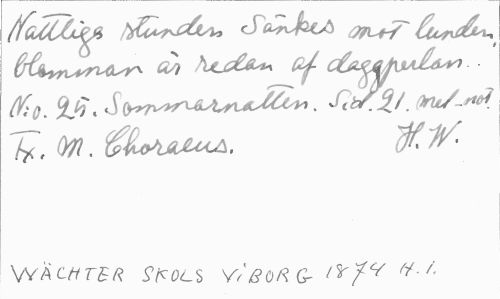 Nattliga stunden Sänkes mot lunden,
blomman är redan af daggperlan..
N:o. 25. Sommarnatten. Sid. 21. mel-not.
Fr. M. Choraeus. H. W.
WÄCHTER SKOLS VIBORG 1874 H.I.